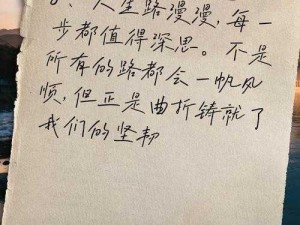 8、人生路漫漫，每一
步都值得深思。不是
所有的路都会一帆风
顺，但正是曲折铸就了
我们的坚韧